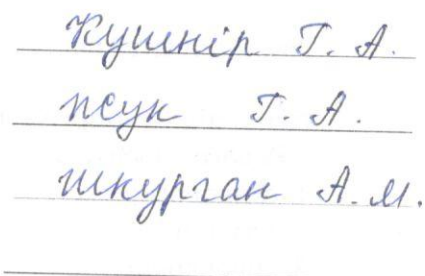 Кушнір Г. А.
жук Г. А.
шкурган А. М.